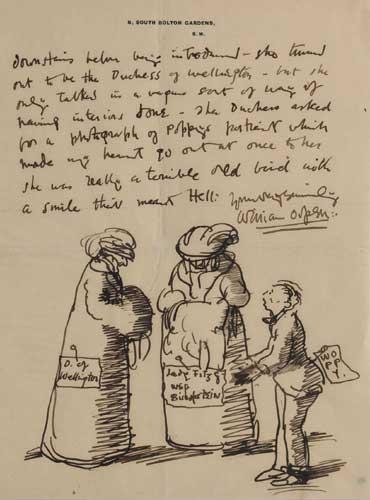 8, SOUTH BOLTON GARDENS,
S.W.
downstairs before being introduced - she turned
out to be the Duchess of Wellington - but she
only talked in a vague sort of way of
having interiors done - The Duchess asked
for a photograph of Poppy's portrait which
made my heart go out at once to her
she was really a terrible old bird with
a smile that meant Hell:
William Orpen
D. of
Wellington
Lady Fitzg
Bischofstein
WO
PP
Y.